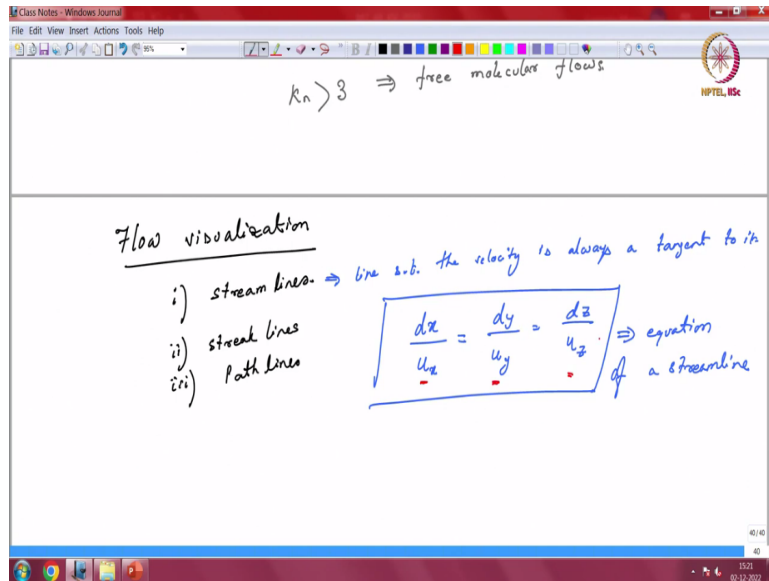 Class Notes - Windows Journal
File Edit View Insert Actions Tools Help
95%
NPTEL, IISc
Kn > 3 ⇒ free molecular flows
Flow visualization
i) stream lines. ⇒ line s.t. the velocity is always a tangent to it
ii) streak lines
iii) Path lines
dx/u_x = dy/u_y = dz/u_z ⇒ equation
of a streamline
40/40
40
15:21
02-12-2022